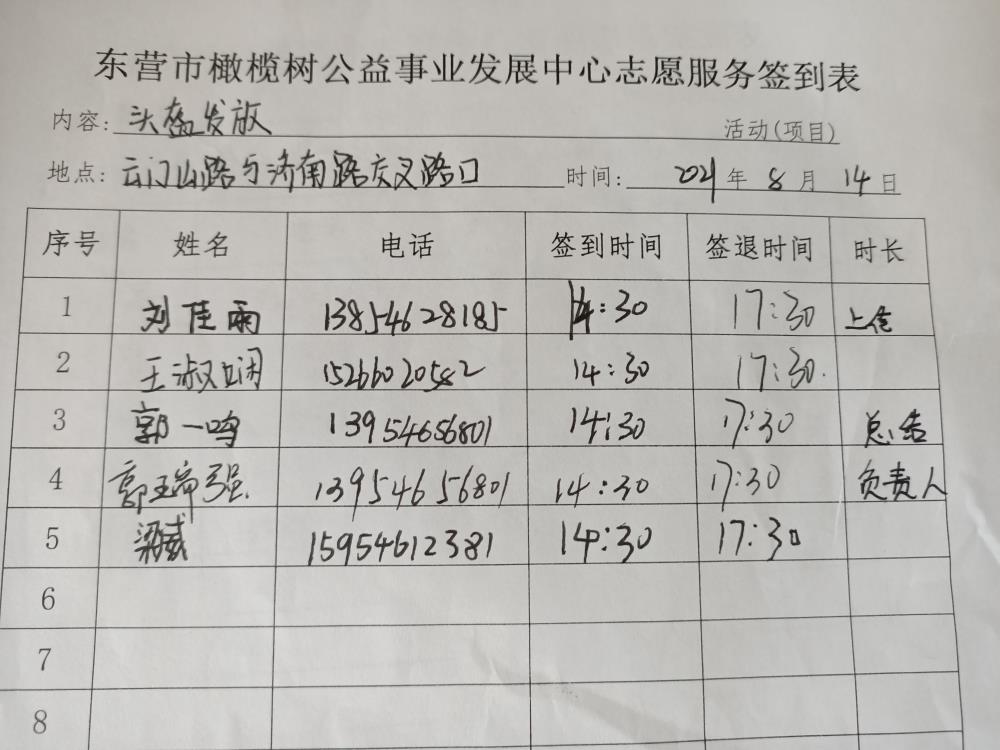 东营市橄榄树公益事业发展中心志愿服务签到表
内容: 头盔发放 活动(项目)
地点: 云门山路与济南路交叉路口 时间: 2021年8月14日
序号 姓名 电话 签到时间 签退时间 时长
1 刘佳雨 13854628185 14:30 17:30 上传
2 王淑娴 15266020582 14:30 17:30.
3 郭一鸣 13954656801 14:30 17:30 总结
4 郭瑞强 13954656801 14:30 17:30 负责人
5 梁威 15954612381 14:30 17:30
6
7
8